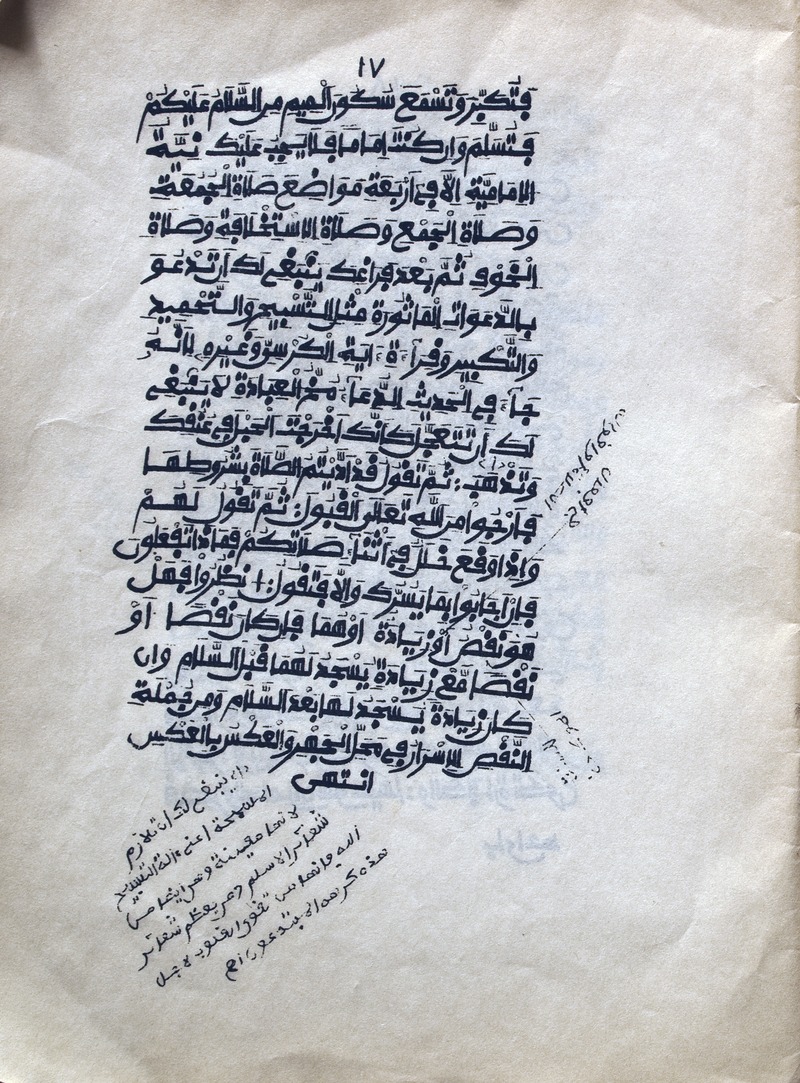 ١٧
فتكبّر وتسمع سكون الميم من السّلام عليكم
فتسلّم وان كنت اماما فلا يجب عليك نيّة
الاماميّة الّا في أربعة مواضع صلاة الجمعة
وصلاة الجمع وصلاة الاستخلافة وصلاة
الخوف ثمّ بعد فراغك ينبغي لك أن تدعو
بالدّعوات الماثورة مثل التّسبيح والتّحميد
والتّكبير وقرآءة ءاية الكرسيّ وغيره لانّه
جآء في الحديث الدّعآء مخّ العبادة لا ينبغي
لك أن تتعجّل كانّك اخرجت الحبل في عنقك
وتذهب: ثمّ تقول قد ادّيتم الصّلاة بشروطها
فارجوا من الله تعالى القبول: ثمّ تقول لهم
واذا وقع خلل في اثنآء صلاتكم فماذا تفعلون
فإن أجابوا بما يسّرك والّا فتقول: انظروا فهل
هو نقص أو زيادة اوهما فان كان نقصا أو
نقصا مّع زيادة يسجد لهما قبل السّلام وان
كان زيادة يسجد لها بعد السّلام ومن جملة
النّقص الاسرار في محلّ الجهر والعكس بالعكس
انتهى
ينبغي لك ان تلازم
السبحة اعني ءالة التسبيح
لانها معينة وهي ايضا من
شعائر الاسلم ومن يعظم شعائر
الله فانها من تقوى القلوب لاجل
هذه كرهه المبتدعون اهـ